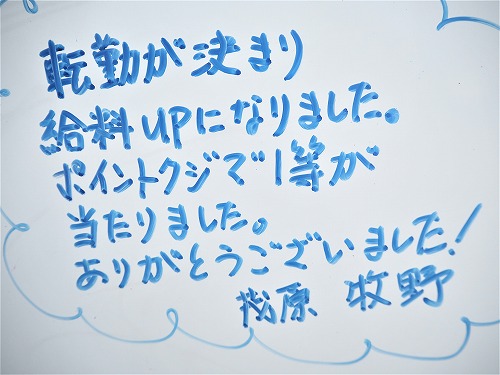 転勤が決まり
給料UPになりました。
ポイントクジで1等が
当たりました。
ありがとうございました!
原 牧野